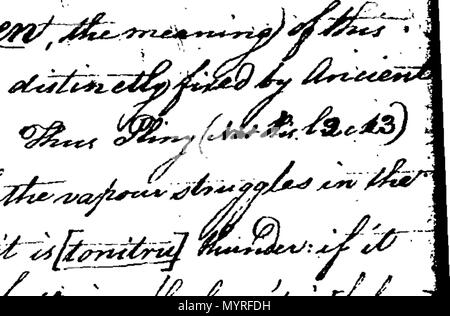 en, the meaning of this
distinctly fixed by Ancient
Thus Pliny ( l 2 c 43)
the vapour struggles in the
it is [tonitru] thunder: if it
alamy
Image ID: MYRFDH
www.alamy.com